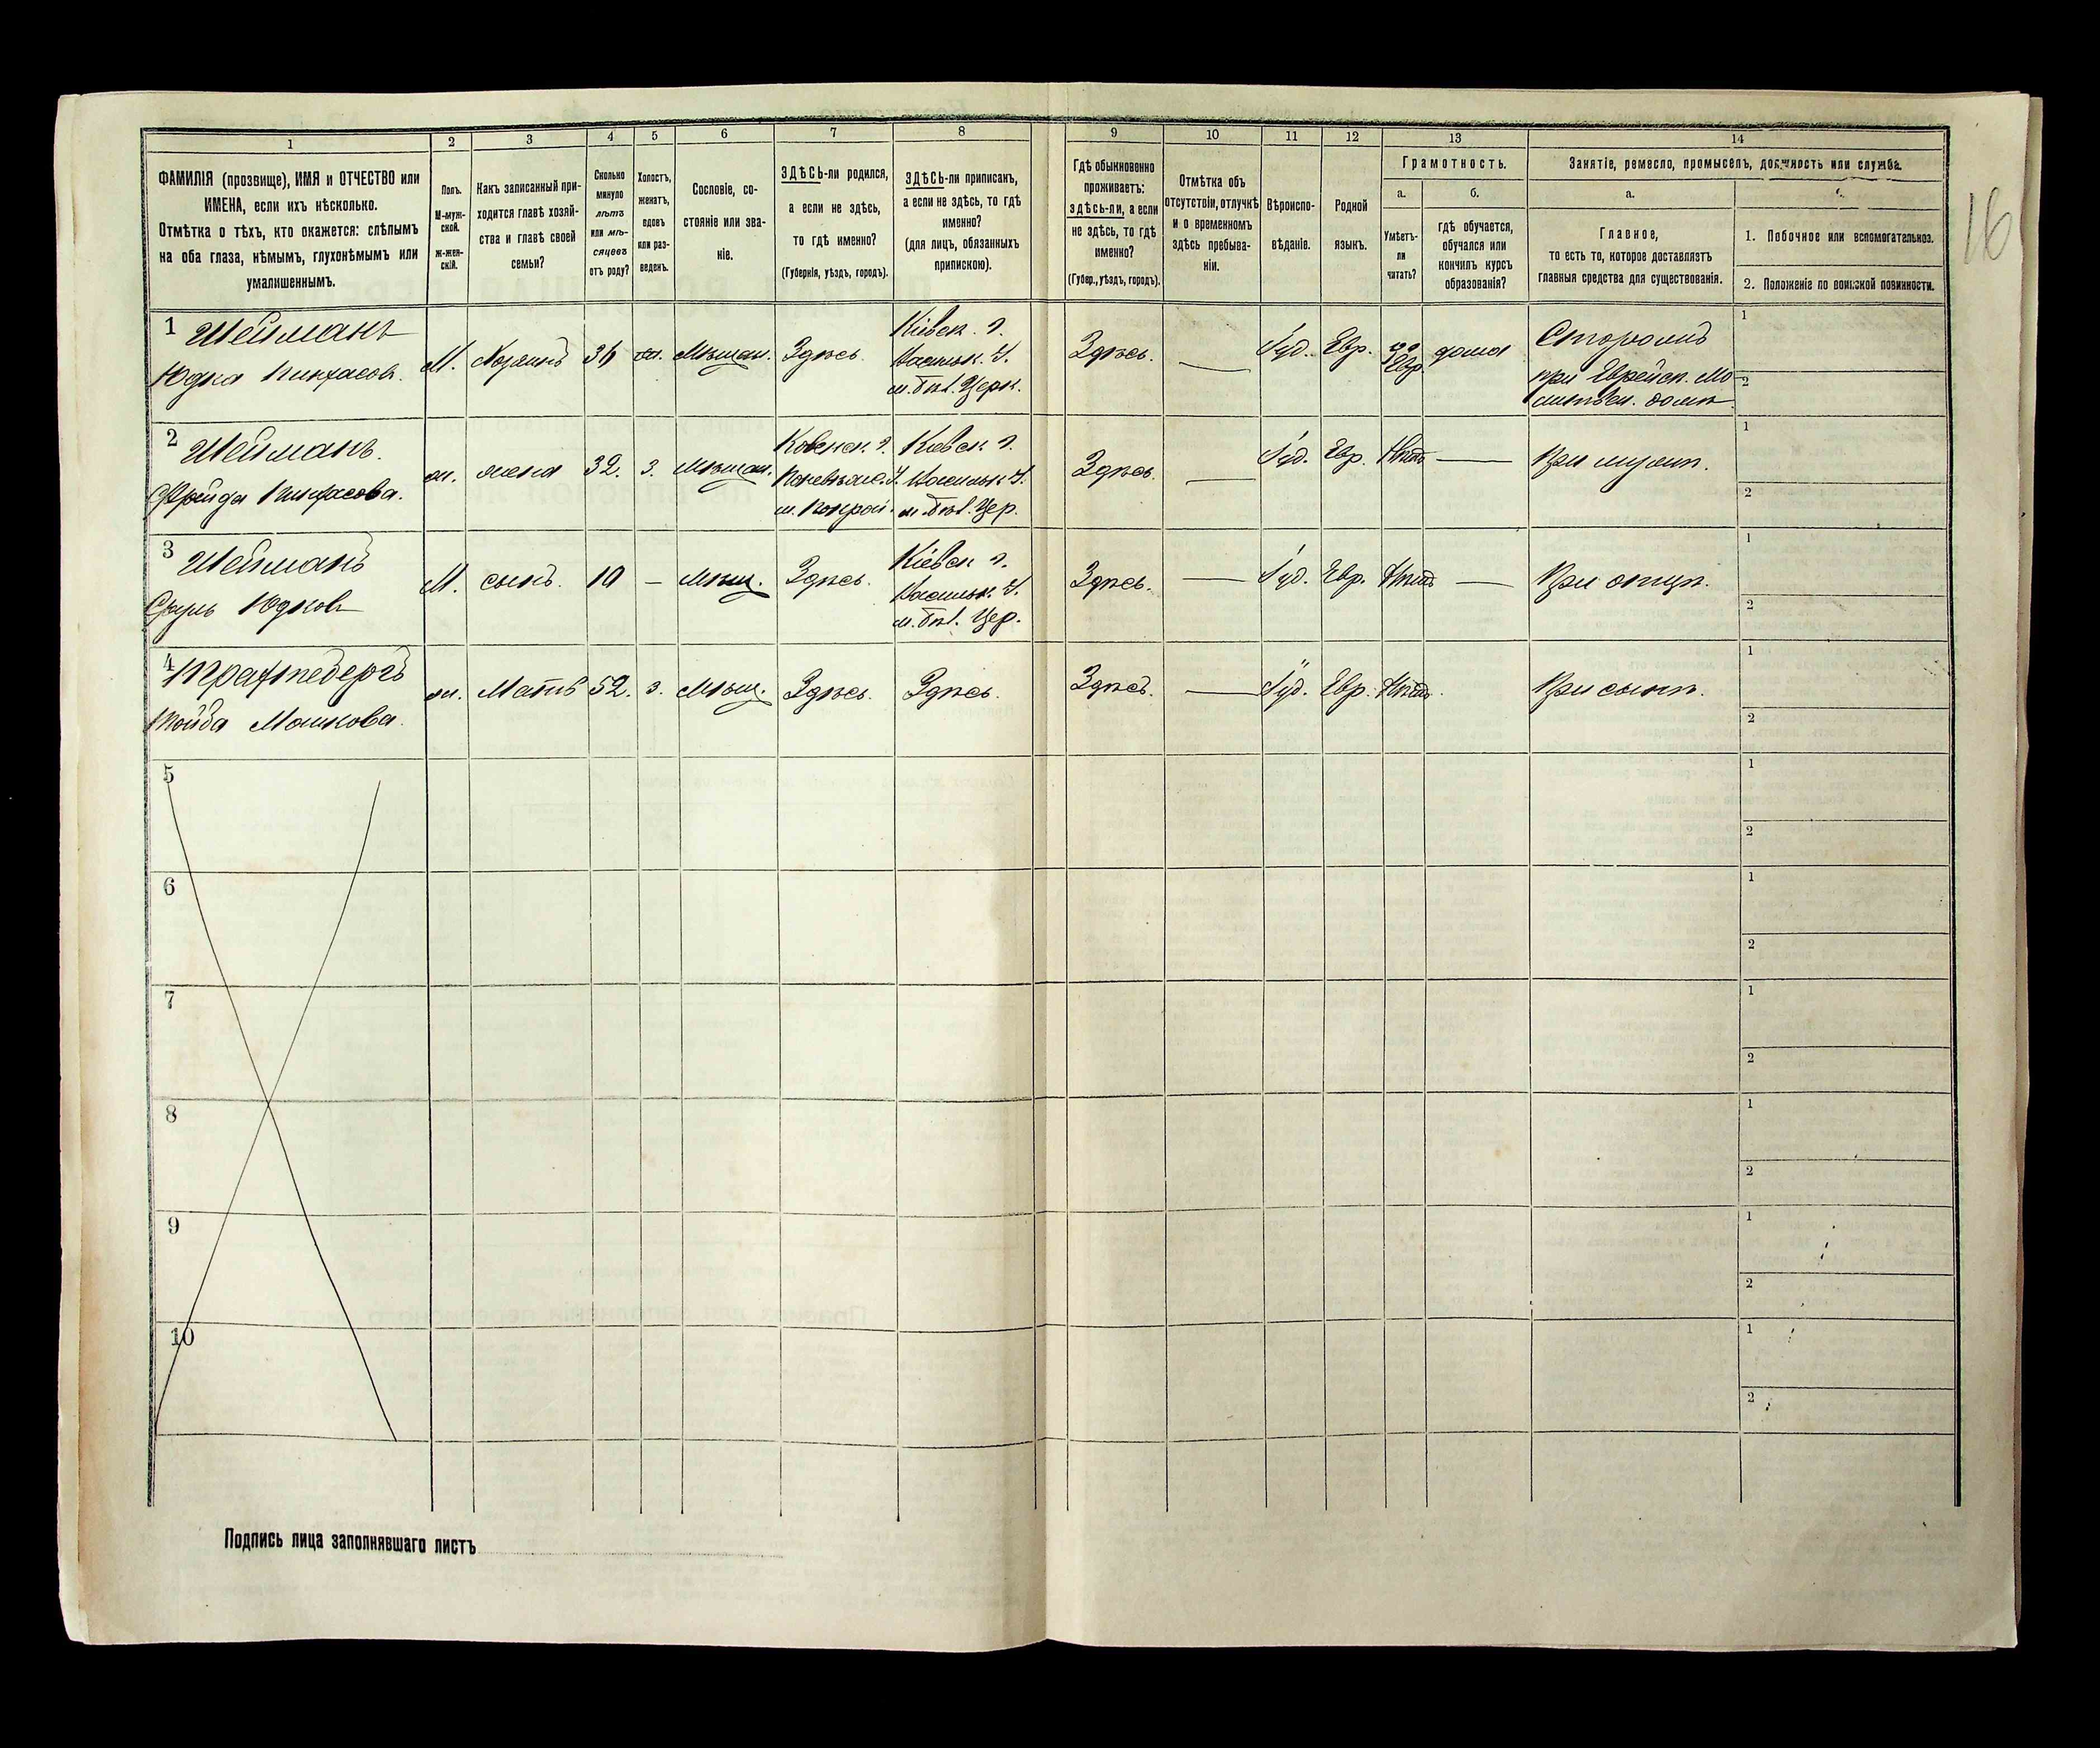 1
2
3
4
5
6
7
8
ФАМИЛІЯ (прозвище), ИМЯ и ОТЧЕСТВО или
ИМЕНА, если ихъ нѣсколько.
Отмѣтка о тѣхъ, кто окажется: слѣпымъ
на оба глаза, нѣмымъ, глухонѣмымъ или
умалишеннымъ.
Полъ.
М-муж-
ской.
Ж-жен-
скій.
Какъ записанный при-
ходится главѣ хозяй-
ства и главѣ своей
семьи?
Сколько
минуло
лѣтъ
или мѣ-
сяцевъ
отъ роду?
Холостъ,
женатъ,
вдовъ
или раз-
веденъ.
Сословіе, со-
стояніе или зва-
ніе.
ЗДѢСЬ-ли родился,
а если не здѣсь,
то гдѣ именно?
(Губернія, уѣздъ, городъ).
ЗДѢСЬ-ли приписанъ,
а если не здѣсь, то гдѣ
именно?
(для лицъ, обязанныхъ
припискою).
9
10
11
12
13
14
Гдѣ обыкновенно
проживаетъ:
здѣсь-ли, а если
не здѣсь, то гдѣ
именно?
(Губер., уѣздъ, городъ).
Отмѣтка объ
отсутствіи, отлучкѣ
и о временномъ
здѣсь пребыва-
ніи.
Вѣроиспо-
вѣданіе.
Родной
языкъ.
Грамотность.
а.
Умѣетъ-
ли
читать?
б.
гдѣ обучается,
обучался или
кончилъ курсъ
образованія?
Занятіе, ремесло, промыселъ, должность или служба.
а.
Главное,
то есть то, которое доставляетъ
главныя средства для существованія.
1. Побочное или вспомогательное.
2. Положеніе по воинской повинности.
16
1
Шейманъ
Юдка Пинхасов.
М.
Хозяинъ
34
Мѣщан.
Здѣсь.
Кіевск. г.
Васильк. У.
м. Бѣл. Церк.
Здѣсь.
Іуд.
Евр.
Евр
дома
Сторожъ
при Еврейск. Мо-
литвен. домѣ
1
2
2
Шейманъ.
Фрейда Пинхасова.
ж.
жена
32.
з.
Мѣщан.
Ковенск. г.
У.
м.
Кіевск. г.
Васильк У.
м. Бѣл. Цер.
Здѣсь.
Іуд.
Евр.
Нѣтъ
При мужѣ.
1
2
3
Шейманъ
Сруль Юдков
М.
сынъ.
10
Мѣщ.
Здѣсь.
Кіевск г.
Васильк. У.
м. Бѣл. Цер.
Здѣсь.
Іуд.
Евр.
Нѣтъ
При отцѣ.
1
2
4
Мошкова.
ж.
Мать
52.
з.
Мѣщ.
Здѣсь.
Здѣсь.
Здѣсь.
Іуд.
Евр.
Нѣтъ.
При сынѣ.
1
2
5
1
2
6
1
2
7
1
2
8
1
2
9
1
2
10
1
2
Подпись лица заполнявшаго листъ